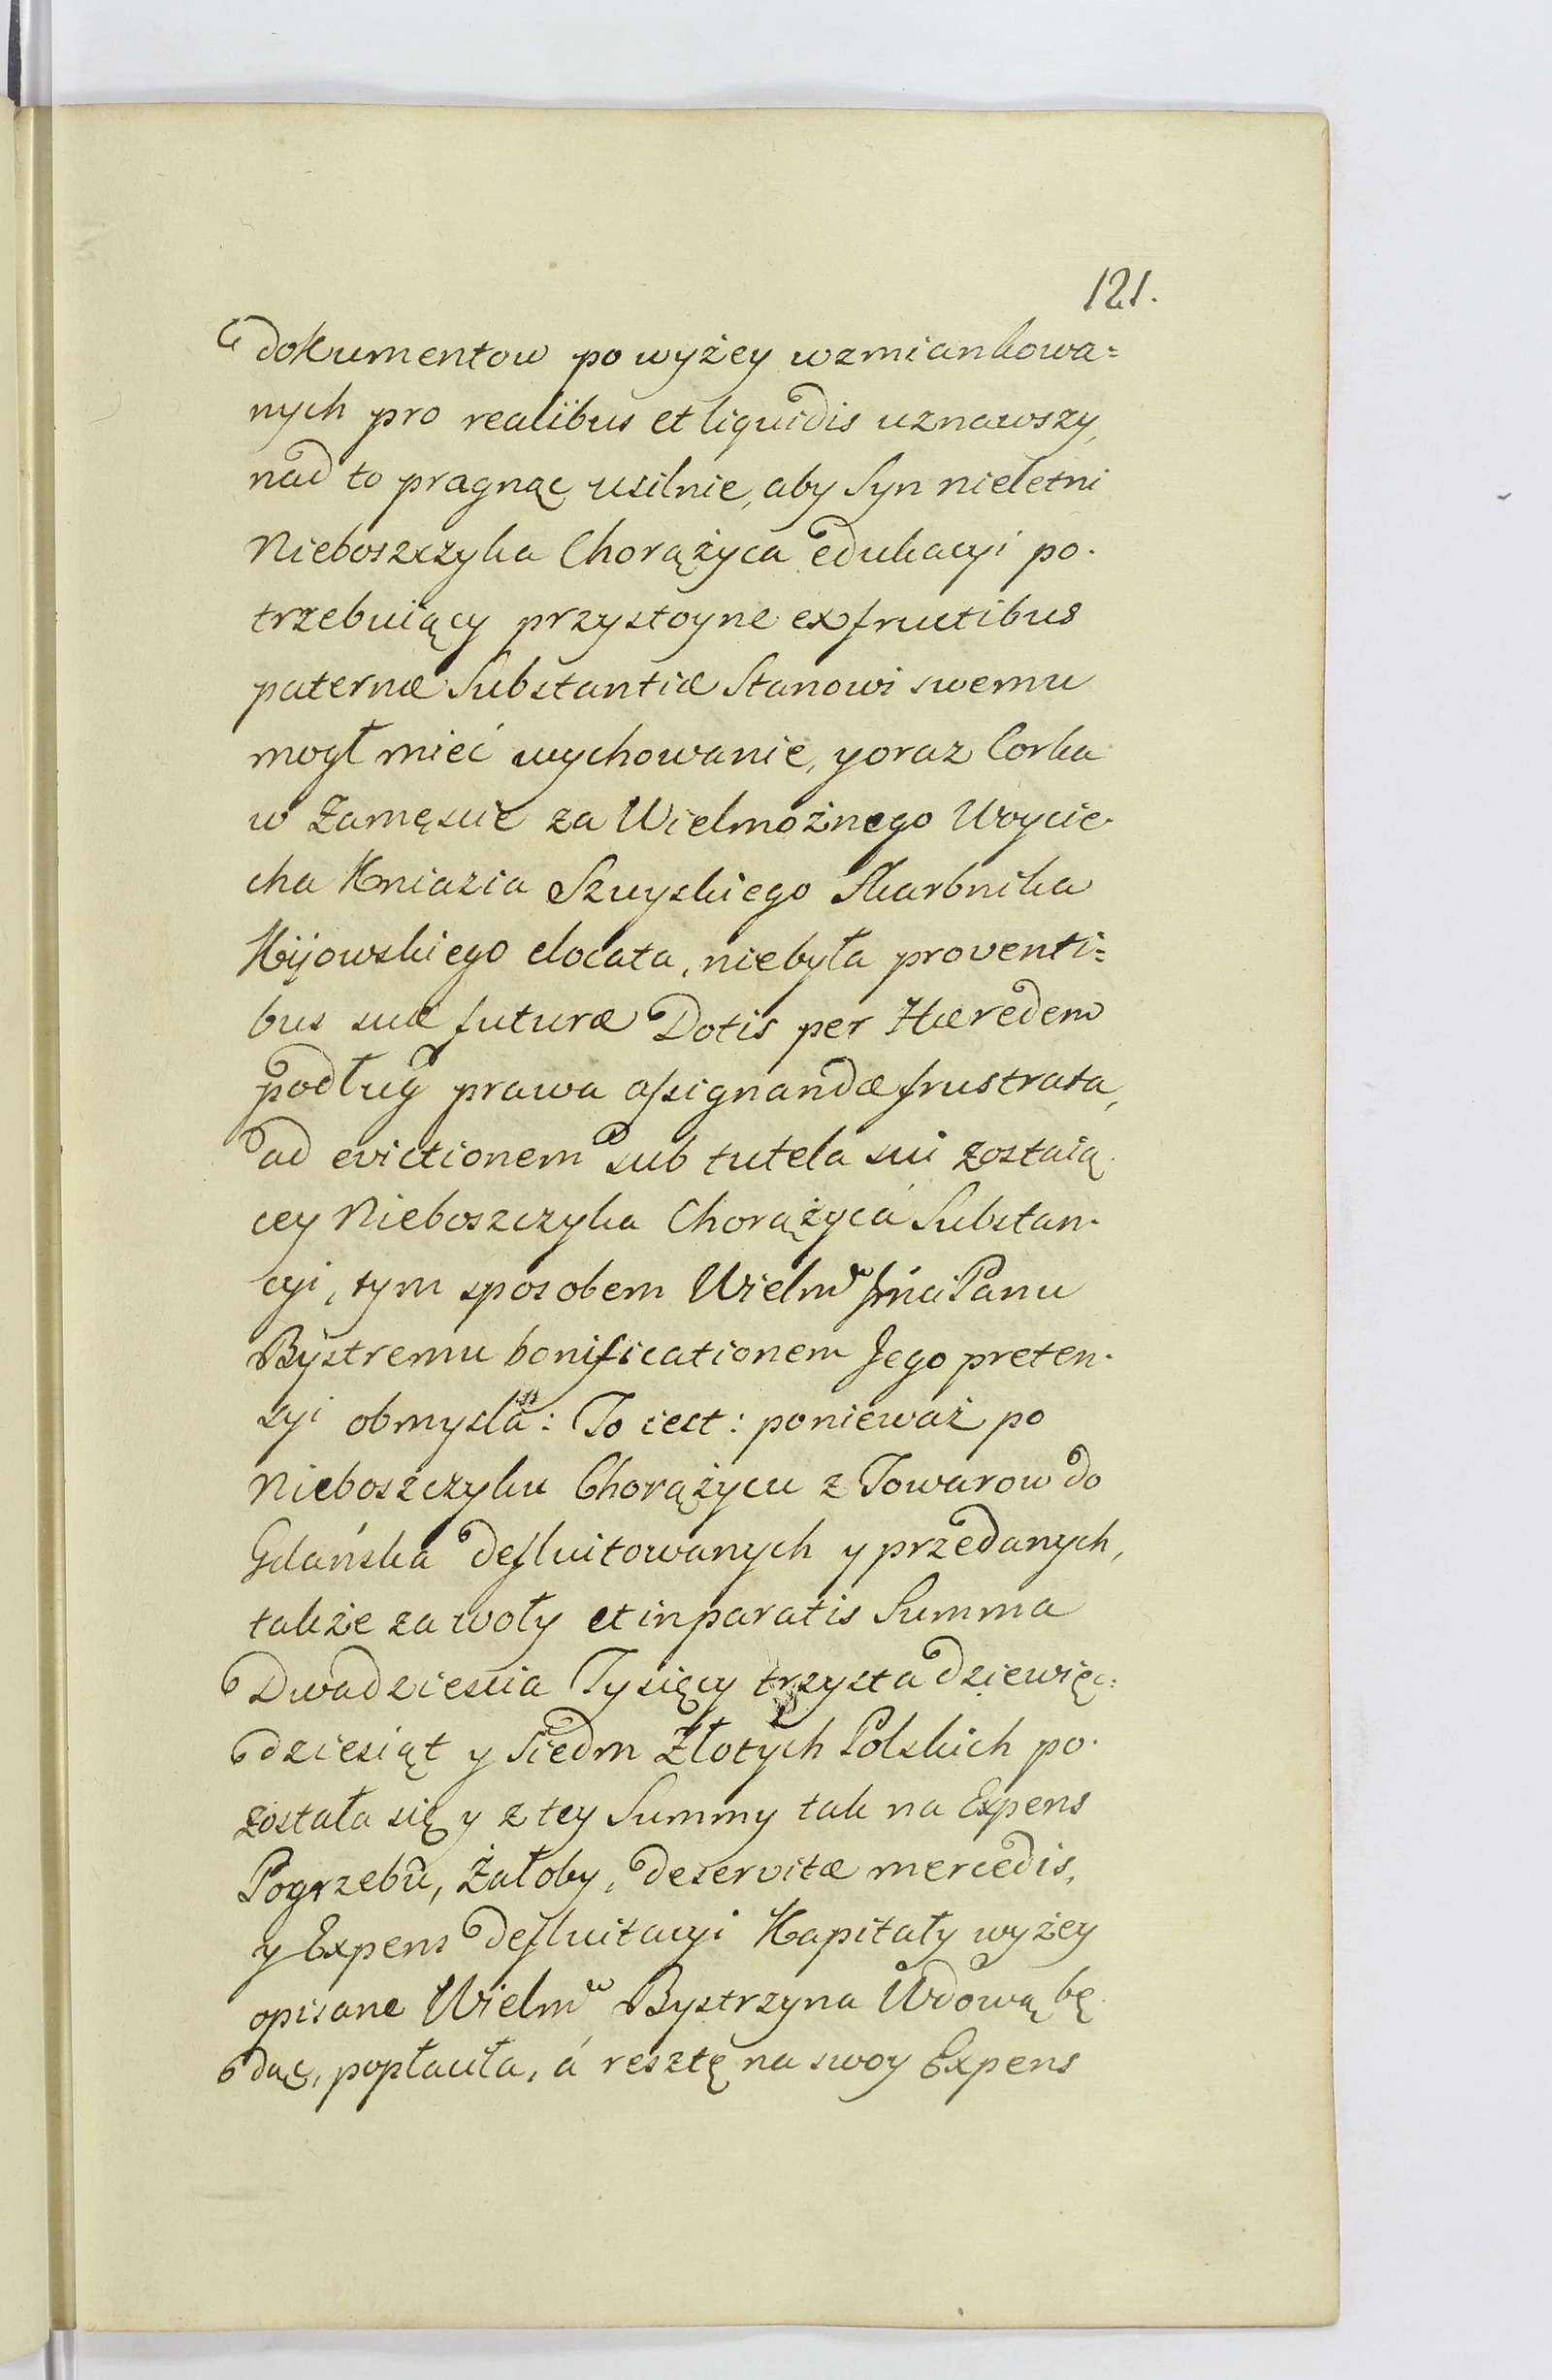 121.
dokumentow powyżey wzmiankowa=
nych pro realibus et liquidis uznawszy,
nad to pragnąc usilnie, aby Syn nieletni
Nieboszczyka Chorążyca edukacyi po-
trzebuiący przystoyne ex fructibus
paternæ Substantiæ Stanowi swemu
mogł mieć wychowanie, y oraz Corka
w Zamęscie za Wielmożnego Woycie-
cha Kniazia Szuyskiego Skarbnika
Kijowskiego elocata, niebyła proventi=
bus suæ futuræ Dotis per Hæredem
podług prawa assignandæ frustrata,
ad evictionem sub tutela sui zostaią-
cey Nieboszczyka Chorążyca Substan-
cyi, tym sposobem Wielmu Jmci Panu
Bystremu bonificationem Jego preten-
syi obmysla: To iest: ponieważ po
Nieboszczyku Chorążycu z Towarow do
Gdańska defluitowanych y przedanych,
także za woły et in paratis Summa
Dwadziescia Tysięcy trzysta dziewięć-
dziesiąt y Siedm Złotych Polskich po-
została się y z tey Summy tak na Expens
Pogrzebu, Żałoby, deservitæ mercedis,
y Expens defluitacyi Kapitały wyżey
opisane Wielma Bystrzyna Wdową bę-
dąc, popłaciła, á resztę na swoy Expens